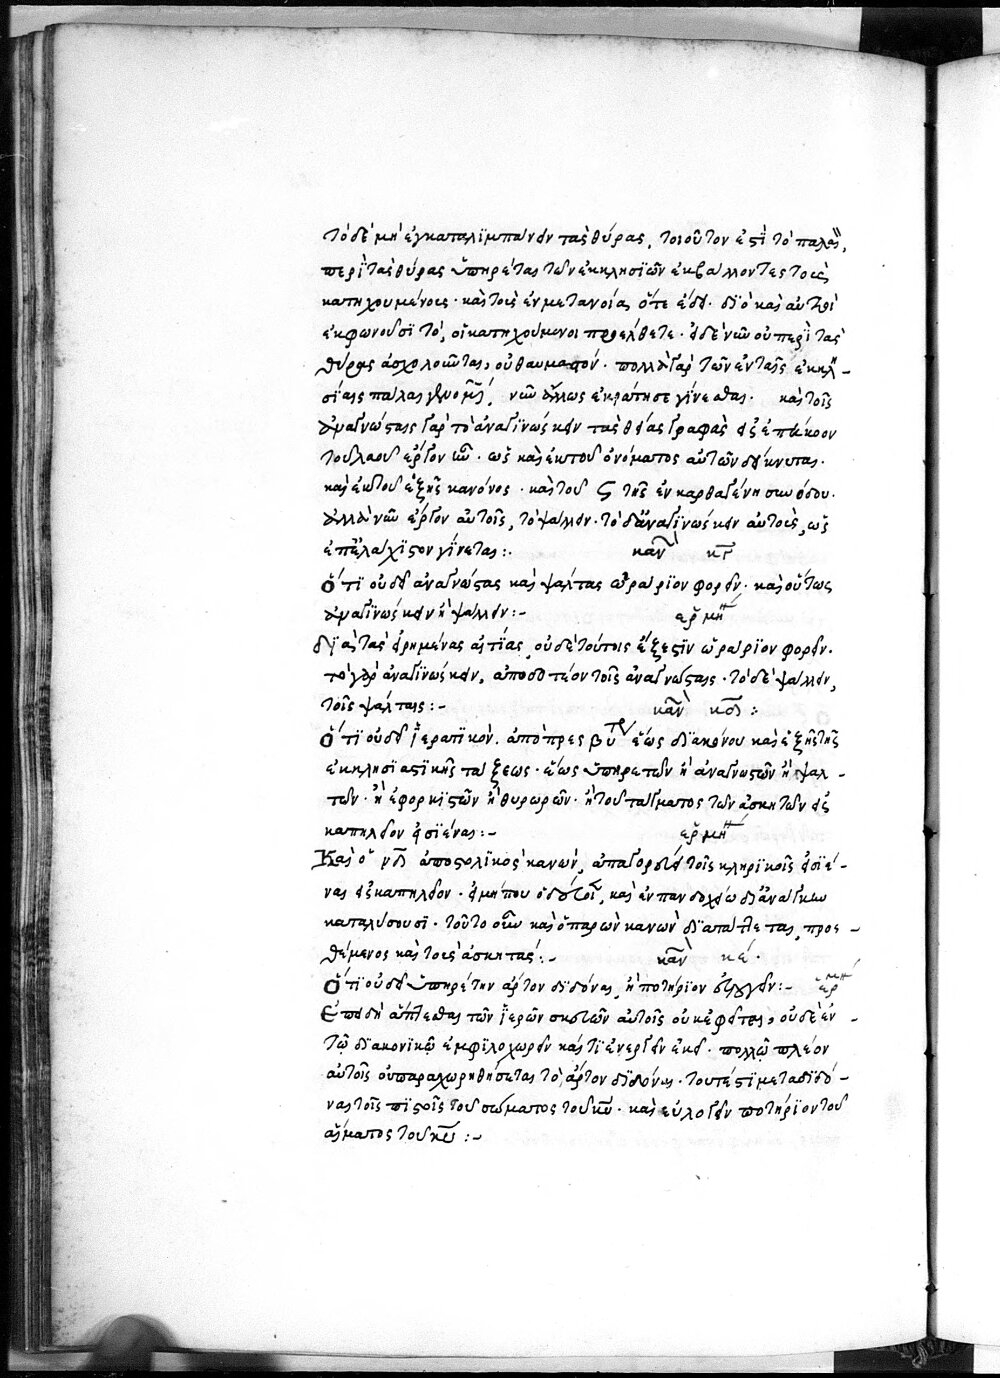 τὸ δὲ μὴ ἐγκαταλιμπάνειν τὰς θύρας, τοιοῦτον ἐστὶ τὸ παλαιὸν,
περὶ τὰς θύρας ὑπηρέτας τῶν ἐκκλησιῶν ἐκβάλλοντες τοὺς
κατηχουμένους· καὶ τοὺς ἐν μετανοίᾳ ὅτε ἔδει· διὸ καὶ αὐτοὶ
ἐκφωνοῦσι τὸ, οἱ κατηχούμενοι προέλθετε· εἰ δὲ νῦν οὐ περὶ τὰς
θύρας ἀσχολοῦνται, οὐ θαυμαστόν· πολλὰ γὰρ τῶν ἐν ταῖς ἐκκλη-
σίαις πάλαι γινομένων, νῦν ἄλλως ἐκράτησε γίνεσθαι· καὶ τοῖς
ἀναγνώσταις γὰρ τὸ ἀναγινώσκειν τὰς θείας γραφὰς εἰς ἐπήκοον
τοῦ λαοῦ ἔργον ἦν· ὡς καὶ ἐκ τοῦ ὀνόματος αὐτῶν δείκνυται·
καὶ ἐκ τοῦ ἑξῆς κανόνος· καὶ τοῦ ϛ τῆς ἐν καρθαγένῃ συνόδου·
ἀλλὰ νῦν ἔργον αὐτοῖς, τὸ ψάλλειν· τὸ δ' ἀναγινώσκειν αὐτοὺς, ὡς
ἐπελάχιστον γίνεται:· καν κγ
Ὅτι οὐ δεῖ ἀναγνώστας καὶ ψάλτας ὠράριον φορεῖν· καὶ οὕτως
ἀναγινώσκειν ἢ ψάλλειν:- ἑρμη
διὰ τὰς εἰρημένας αἰτίας, οὐδὲ τούτοις ἔξεστιν ὠράριον φορεῖν·
τὸ γὰρ ἀναγινώσκειν, ἀποδοτέον τοῖς ἀναγνώσταις· τὸ δὲ ψάλλειν,
τοῖς ψάλταις:- καν κδ:
Ὅτι οὐ δεῖ ἱερατικὸν· ἀπὸ πρεσβυτ ἕως διακόνου καὶ ἑξῆς τῆς
ἐκκλησιαστικῆς τάξεως· ἕως ὑπηρετῶν ἢ ἀναγνωστῶν ἢ ψαλ-
τῶν· ἢ ἐφορκιστῶν ἢ θυρωρῶν· ἢ τοῦ τάγματος τῶν ἀσκητῶν εἰς
καπηλεῖον εἰσιέναι:- ἑρμη
Καὶ ὁ νδ ἀποστολικὸς κανὼν, ἀπαγορεύει τοῖς κληρικοῖς εἰσιέ-
ναι εἰς καπηλεῖον· εἰ μήπου ὁδεύοι, καὶ ἐν πανδοχείῳ δι' ἀνάγκην
καταλύσουσι· τοῦτο οὖν καὶ ὁ παρὼν κανὼν διατάττεται, προσ-
θέμενος καὶ τοὺς ἀσκητάς:- καν κέ·
Ὅτι οὐ δεῖ ὑπηρέτην ἄρτον διδόναι, ἢ ποτήριον εὐλογεῖν:- ἑρμη
Ἐπειδὴ ἅπτεσθαι τῶν ἱερῶν σκευῶν αὐτοῖς οὐκ ἐφεῖται, οὐδὲ ἐν
τῷ διακονικῷ ἐμφιλοχωρεῖν καί τι ἐνεργεῖν ἐκεῖ· πολλῷ πλέον
αὐτοῖς οὐ παραχωρηθήσεται τὸ ἄρτον διδόναι· τουτέστι μεταδιδό-
ναι τοῖς πιστοῖς τοῦ σώματος τοῦ κυ· καὶ εὐλογεῖν ποτήριον τοῦ
αἵματος τοῦ κυ:-